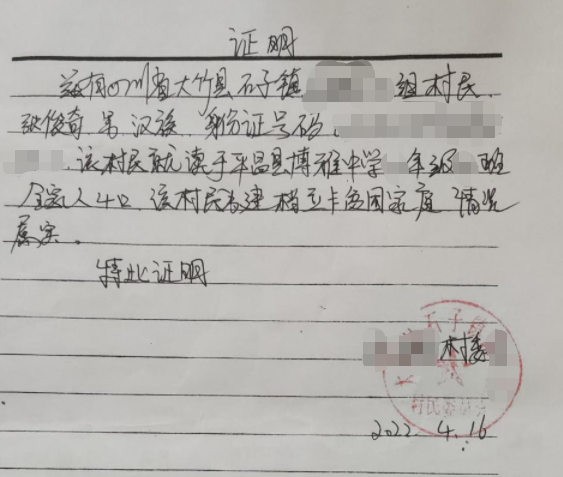 证明
兹有四川省大竹县石子镇 组村民,
张俊奇 男 汉族 身份证号码,
,该村民就读于平昌县博雅中学 年级 班
全家人4口,该村民为建档立卡贫困家庭 情况
属实。
特此证明
村委
石子
村民委员会
2022.4.16